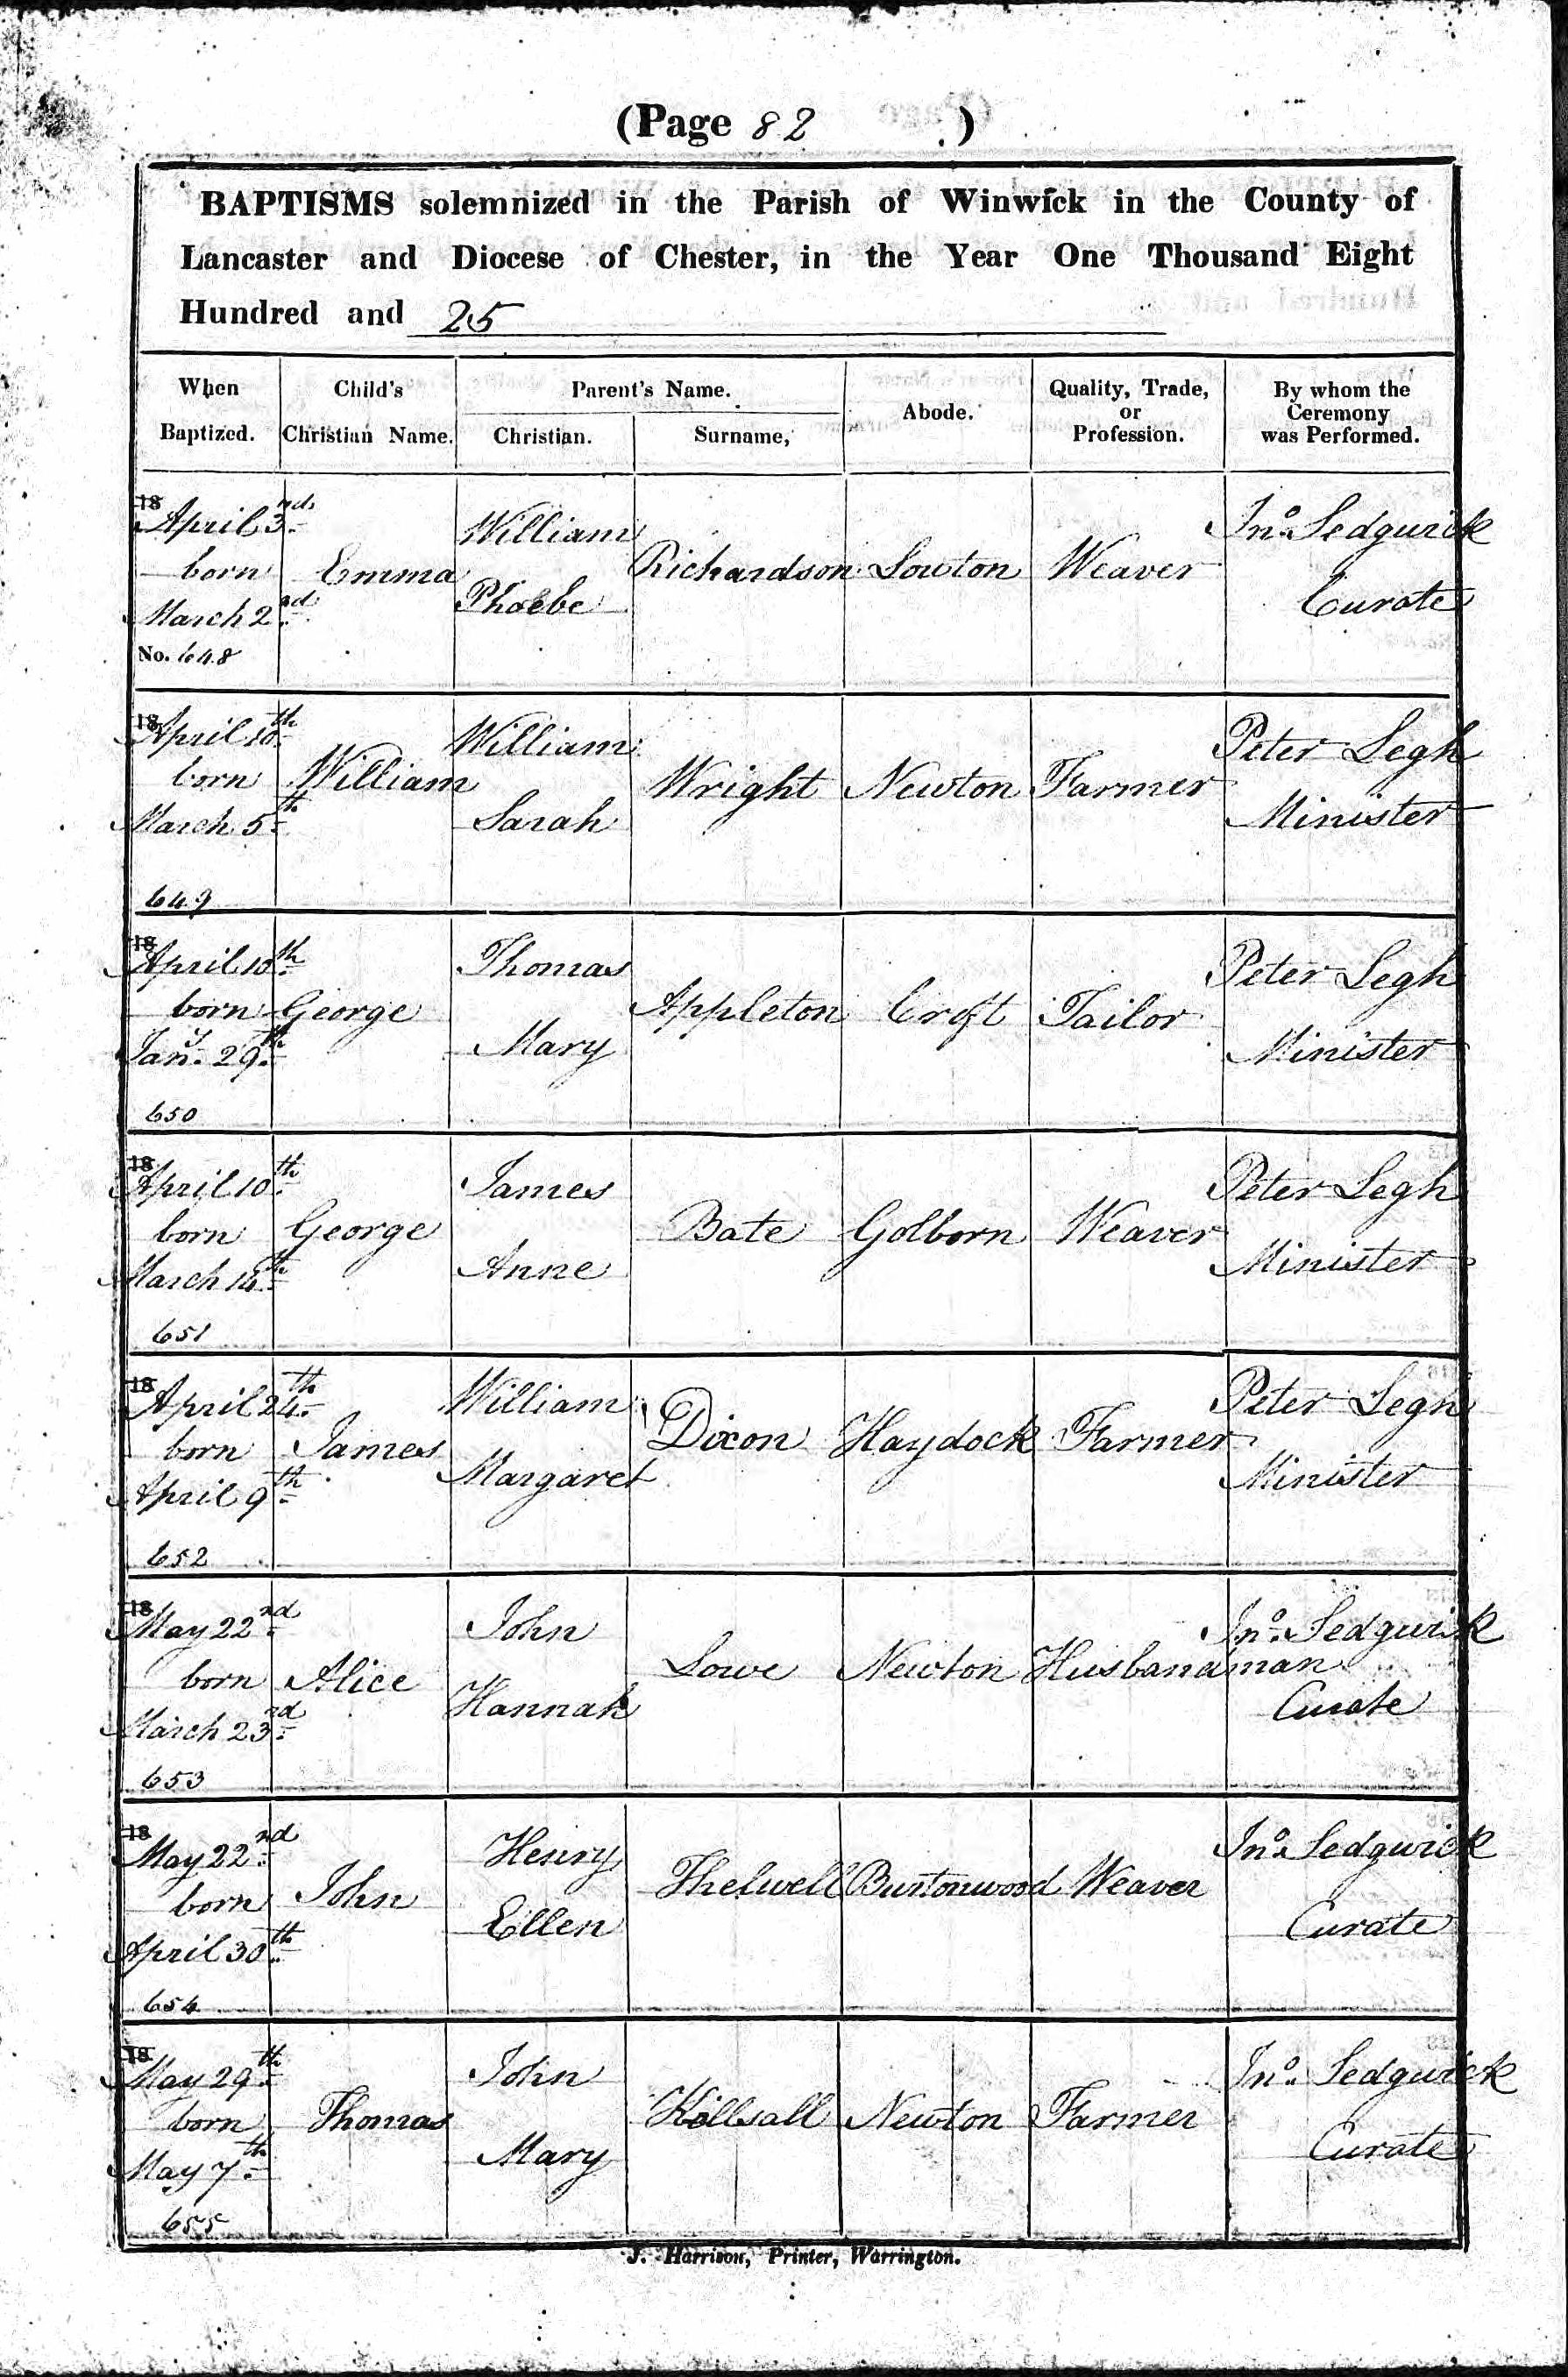 (Page 82 )
BAPTISMS solemnized in the Parish of Winwick in the County of
Lancaster and Diocese of Chester, in the Year One Thousand Eight
Hundred and 25
When Baptized.
Child's Christian Name.
Parent's Name.
Christian.
Surname,
Abode.
Quality, Trade, or Profession.
By whom the Ceremony was Performed.
18
April 3rd
born
March 2nd
No. 648
Emma
William
Phoebe
Richardson
Lowton
Weaver
Jno. Sedgwick
Curate
18
April 10th
born
March 5th
649
William
William
Sarah
Wright
Newton
Farmer
Peter Legh
Minister
18
April 10th
born
Jany. 29th
650
George
Thomas
Mary
Appleton
Croft
Tailor
Peter Legh
Minister
18
April 10th
born
March 14th
651
George
James
Anne
Bate
Golborn
Weaver
Peter Legh
Minister
18
April 24th
born
April 9th
652
James
William
Margaret
Dixon
Haydock
Farmer
Peter Legh
Minister
18
May 22nd
born
March 23rd
653
Alice
John
Hannah
Lowe
Newton
Husbandman
Jno. Sedgwick
Curate
18
May 22nd
born
April 30th
654
John
Henry
Ellen
Thelwell
Burtonwood
Weaver
Jno. Sedgwick
Curate
18
May 29th
born
May 7th
655
Thomas
John
Mary
Newton
Farmer
Jno. Sedgwick
Curate
J. Harrison, Printer, Warrington.